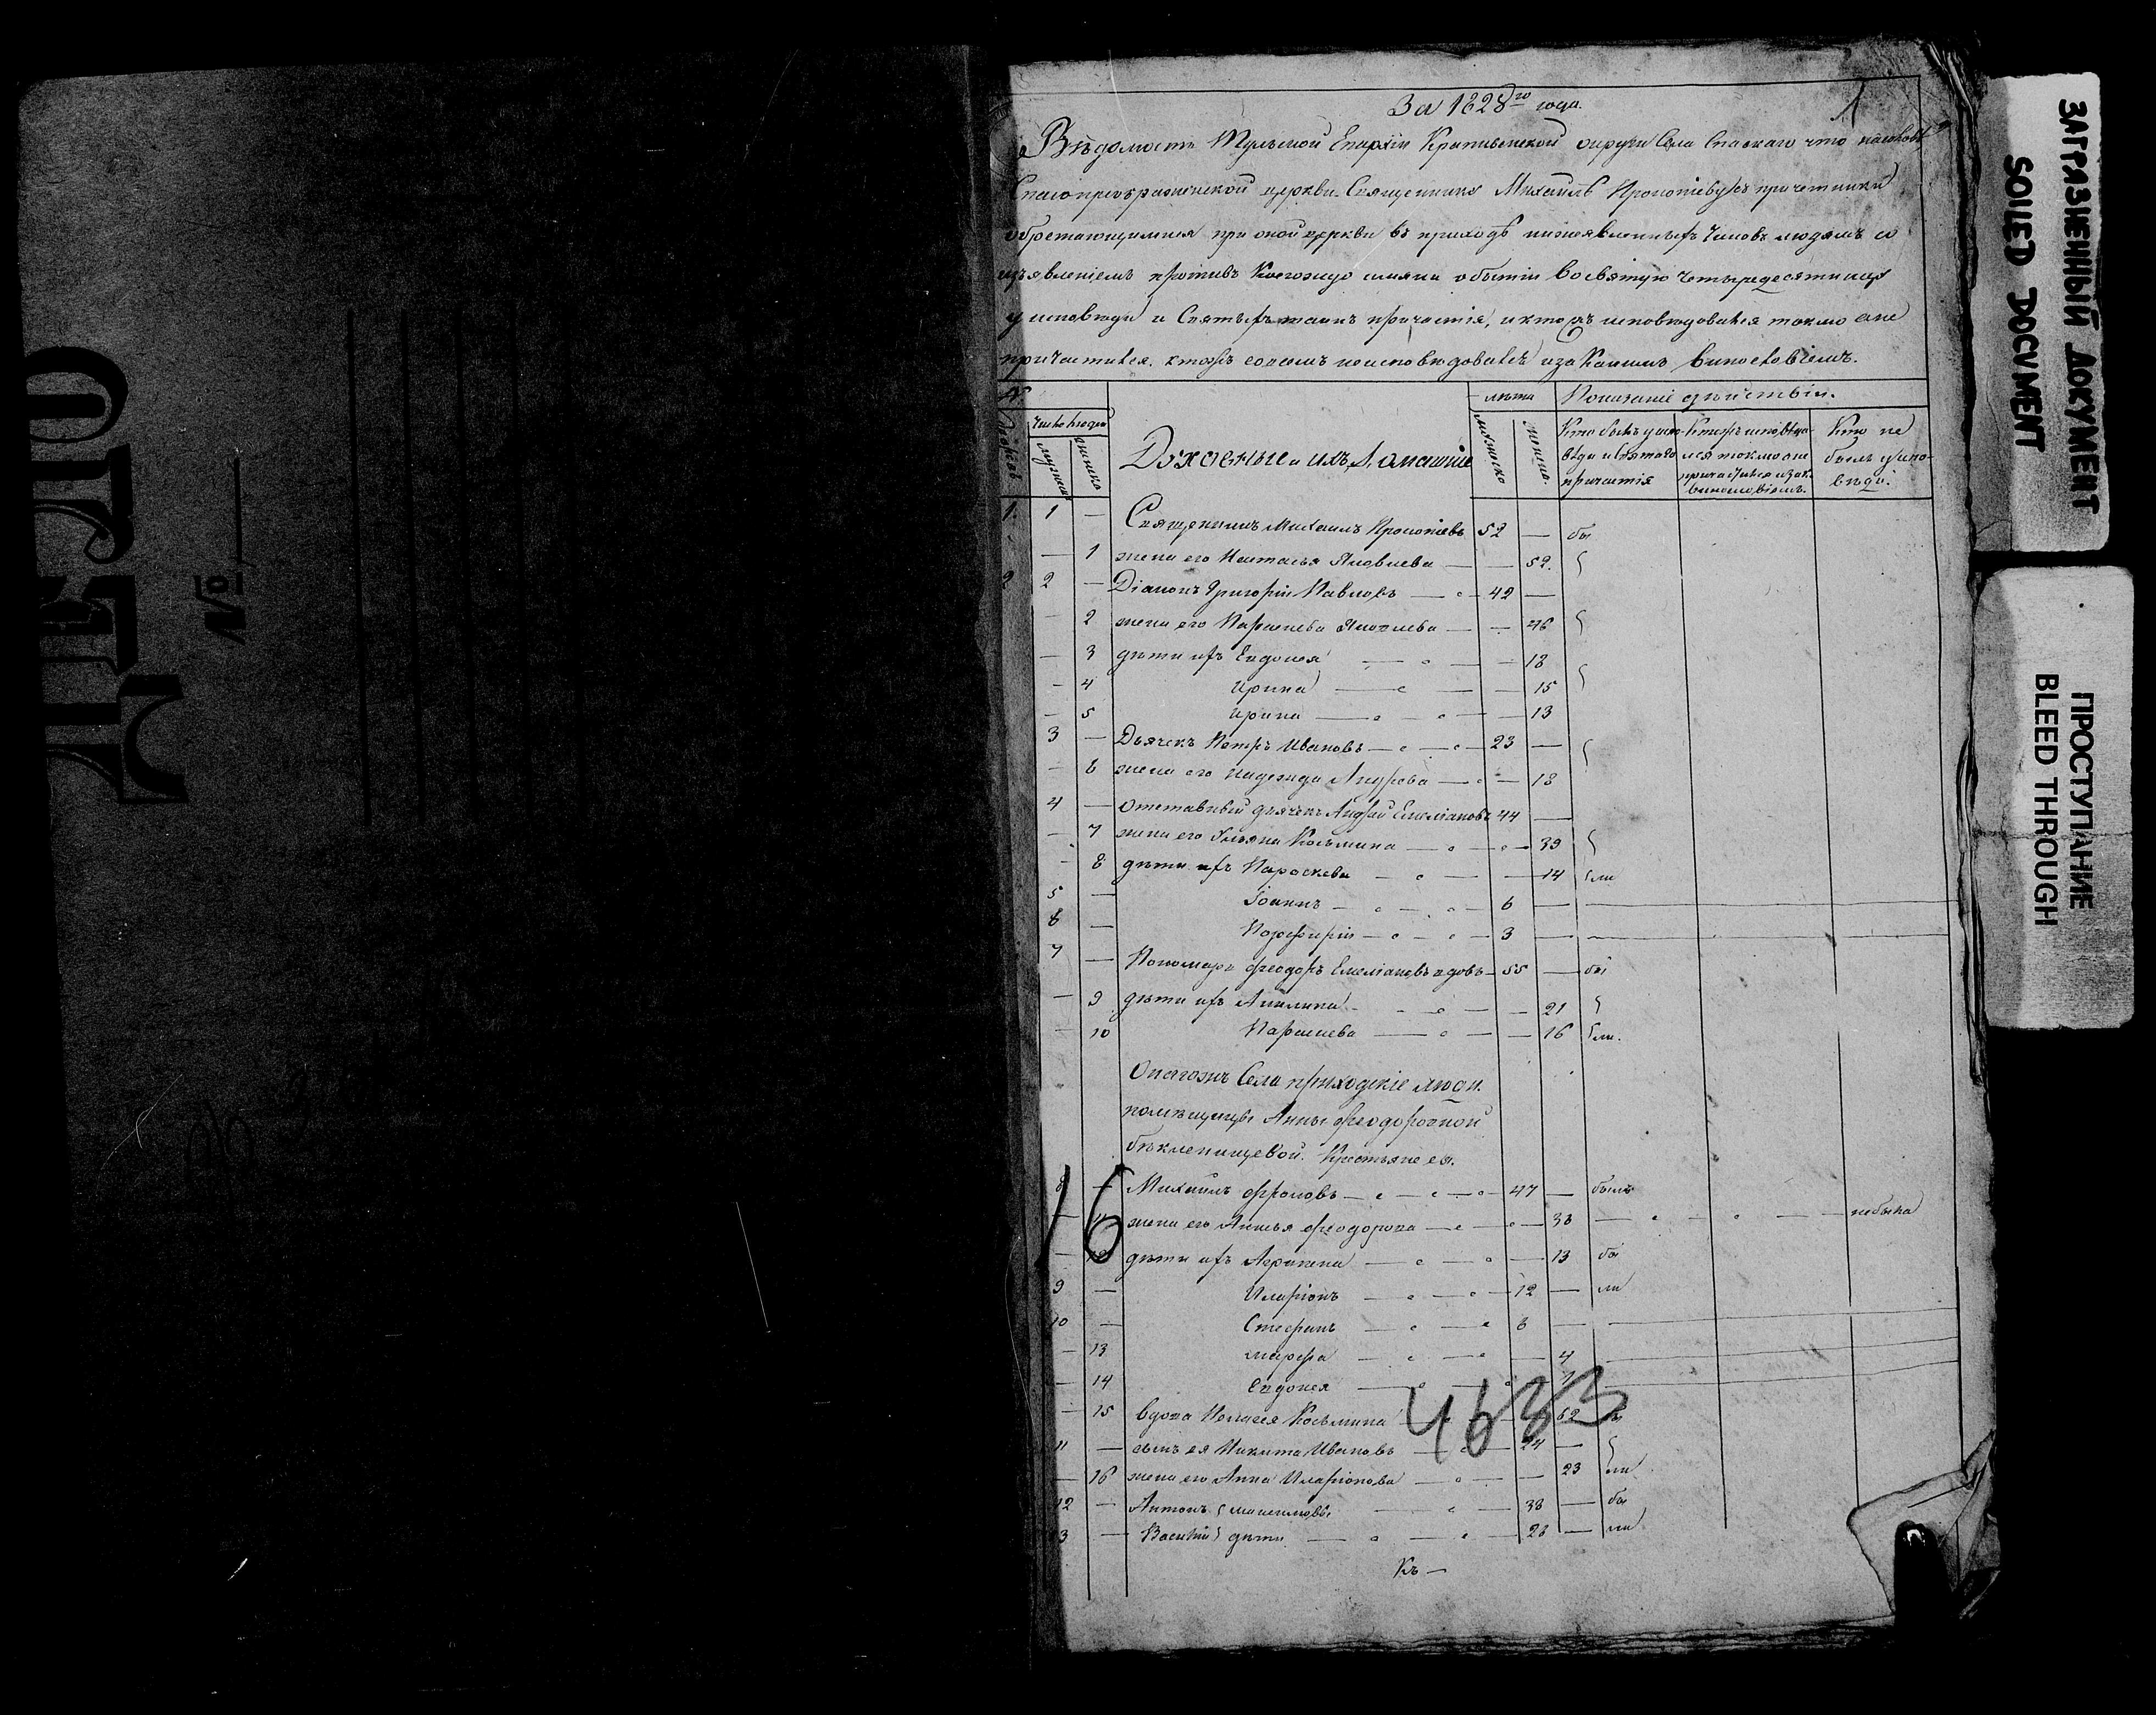 ДѢЛО
№
За 1828го года.
1
Вѣдомость Тульской Епархіи Крапивенской округи Села Спаскаго что на
Спасопреображенской церкви Священника Михаила Прокопіева съ причетники
обретающимися при оной церкви въ приходѣ нижеявленныхъ чиновъ людямъ со
изъявленіемъ противъ коегождо имяни о бытіи во святую четыредесятницу
у исповѣди и Святыхъ таинъ причастія, и ктожъ исповѣдовался токмо а не
причастился, ктожъ и не исповѣдовался и за какимъ винословіемъ.
№
число людей
лѣта
Показаніе дѣйствій.
Дворовъ
мужеска
женска
Духовныя и ихъ домашніе
мужеска
женска.
Кто былъ у исповѣди и святаго причастія
Ктожъ исповѣдался токмо а не причастился и за к. винословіемъ.
Кто не былъ у исповѣди.
1. 1 — Священникъ Михаилъ Прокопіевъ 52 — бы
— 1 жена его Наталья Яковлева — — 52.
2 2 — Діаконъ Григорій Павловъ — 42 —
— 2 жена его Параскева Яковлева — — 46
— 3 дѣти ихъ Евдокея — — 18
— 4 Ирина — — 15
— 5 Ирина — — 13
3 — Дьячекъ Петръ Ивановъ — 23 —
— 6 жена его надежда — 18
4 — отставный дьячекъ Андрей Емеліановъ 44 —
— 7 жена его Ульяна Косьмина — 39
— 8 дѣти ихъ Параскева — — 14 ли
5 — Іоаннъ — 6 —
6 — Порфирій — 3 —
7 — Пономарь Феодоръ Емеліановъ вдовъ — 55 — бы
— 9 дѣти ихъ Акилина — 21
— 10 Параскева — — 16 ли.
Онагожъ Села приходскіе люди
помѣщицы Анны Феодоровной
бѣклемищевой. Крестьяне ея.
8 — Михаилъ Фроловъ — 47 — былъ
— 11 жена его Феодорова — 38 — небыла
— 12 дѣти ихъ Агрипена — 13 бы
9 — Иларіонъ — 12 — ли
10 — Стефанъ — 8 —
— 13 марфа — 4
— 14 Евдокея — 1
— 15 вдова Пелагея Косьмина — 62 бы
11 — сынъ ея Никита Ивановъ — 24 —
— 16 жена его Анна Иларіонова — — 23 ли
12 — Антонъ максимовы — 38 — бы
13 — Василій дѣти — 28 — ли
Къ —
16
4633
ЗАГРЯЗНЕННЫЙ ДОКУМЕНТ
SOILED DOCUMENT
ПРОСТУПАНИЕ
BLEED THROUGH